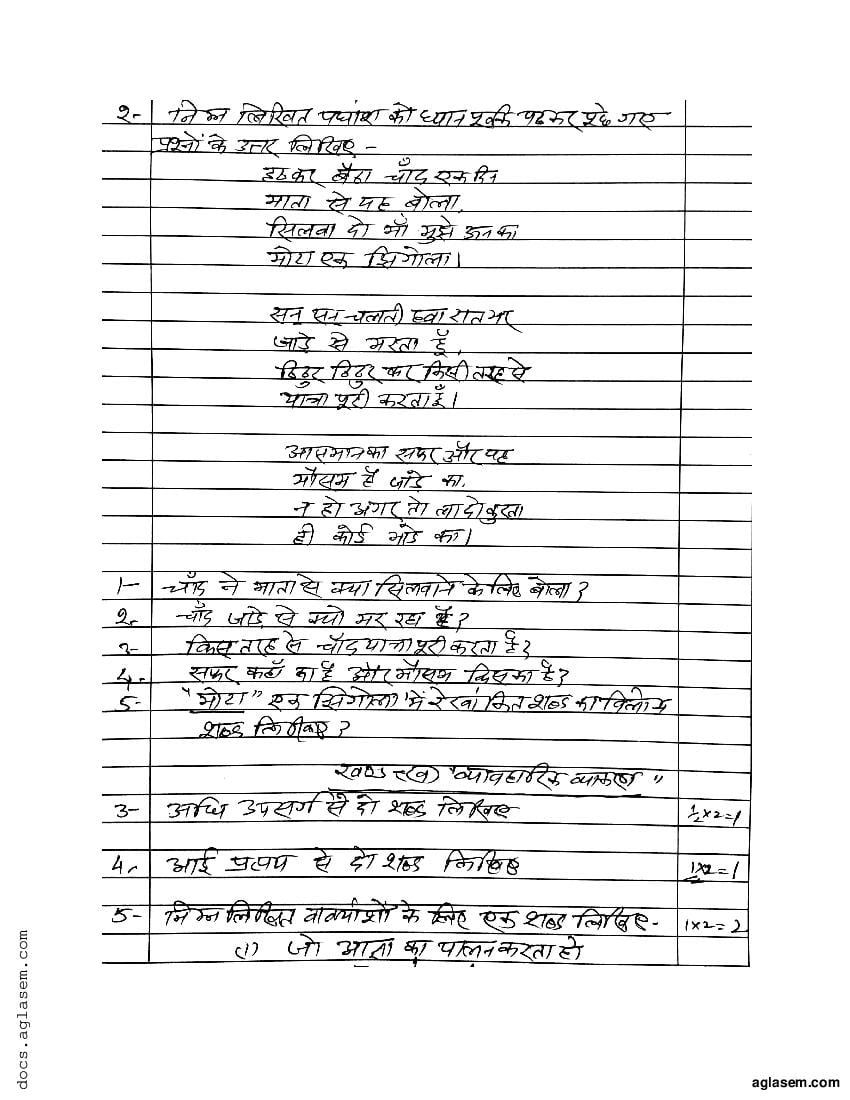 २- निम्न लिखित पद्यांश को ध्यान पूर्वक पढकर पूछे गए
प्रश्नों के उत्तर लिखिए -
हठकर बैठा चाँद एक दिन
माता से यह बोला,
सिलवा दो माँ मुझे ऊन का
मोटा एक झिंगोला।
सन् सन् चलती हवा रात भर
जाड़े से मरता हूँ,
ठिठुर ठिठुर कर किसी तरह से
यात्रा पूरी करता हूँ।
आसमान का सफर और यह
मौसम है जाडे का,
न हो अगर तो ला दो कुरता
ही कोई भाडे का।
1- चाँद ने माता से क्या सिलवाने के लिए बोला?
2. चाँद जाडे से क्यों मर रहा है?
3- किस तरह से चाँद यात्रा पूरी करता है?
4. सफर कहाँ का है और मौसम किसका है?
5- "मोटा" एक झिंगोला में रेखांकित शब्द का विलोम
शब्द लिखिए?
खण्ड (ब) "व्यावहारिक व्याकरण"
3- अधि उपसर्ग से दो शब्द लिखिए ½x2=1
4. आई प्रत्यय से दो शब्द लिखिए 1x2=1
5- निम्न लिखित वाक्यांशों के लिए एक शब्द लिखिए- 1x2=2
(1) जो आज्ञा का पालन करता हो
docs.aglasem.com
aglasem.com